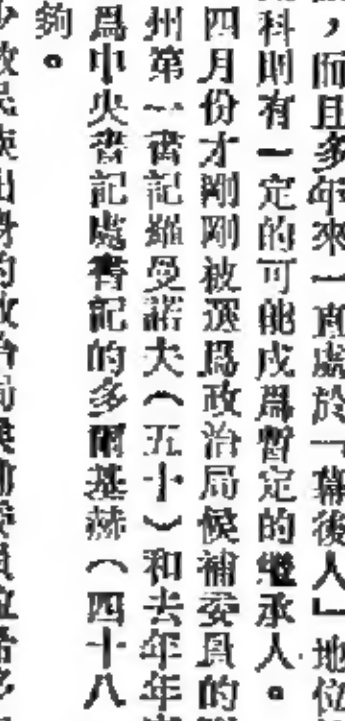 ，而且多年來一直處於「幕後人」地位
科則有一定的可能成爲暫定的繼承人。
四月份才剛剛被選爲政治局候補委員的
州第一書記羅曼諾夫（五十）和去年年
爲中央書記處書記的多爾基赫（四十八
夠。
少數民族出身的政治局候補委員